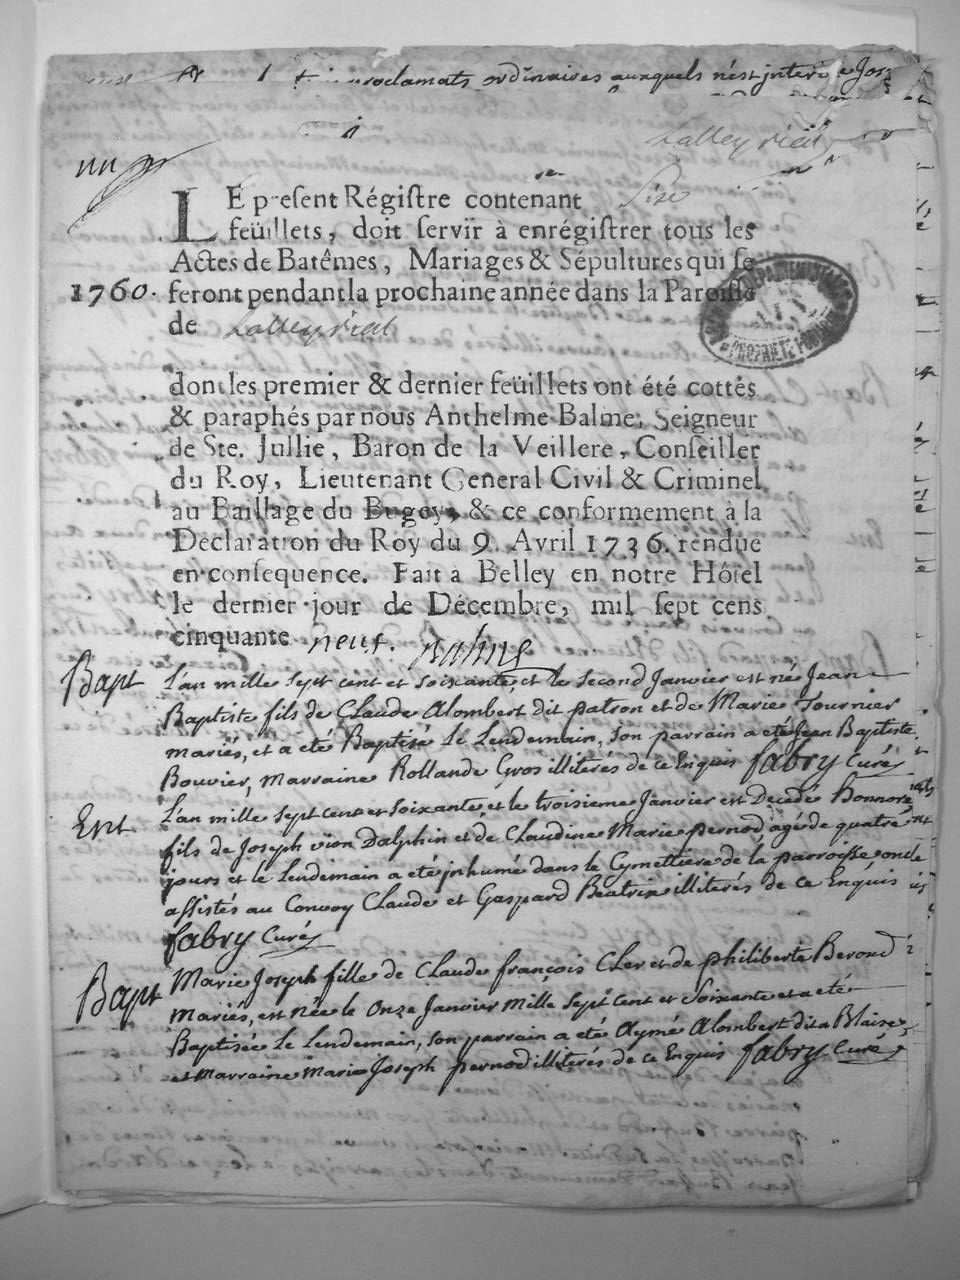 proclamats ordinaires auxquels n'est interv
Lalleyriat
LE present Régistre contenant Sise
feüillets, doit servir à enrégistrer tous les
Actes de Batêmes, Mariages & Sépultures qui se
1760. feront pendant la prochaine année dans la Paroisse
de Lalleyriat
PROPRIETE PUBLIQUE
dont les premier & dernier feüillets ont été cottés
& paraphés par nous Anthelme Balme, Seigneur
de Ste. Jullie, Baron de la Veillere, Conseiller
du Roy, Lieutenant General Civil & Criminel
au Bailliage du Bugey, & ce conformement à la
Déclaration du Roy du 9. Avril 1736. rendue
en consequence. Fait à Belley en notre Hôtel
le dernier jour de Décembre, mil sept cens
cinquante neuf. Balme
Bapt L'an mille sept cent et soixante, et le second Janvier est né Jean
Baptiste fils de Claude Alombert dit patron et de Marie Tournier
mariés, et a eté Baptisé Le Lendemain, son parrain a eté Jean Baptiste
Bouvier, marraine Rollande Gros illiterés de ce Enquis fabry Curé
Ent L'an mille sept cent et soixante et le troisieme Janvier est Decedé honnoré
fils de Joseph vion Dalphin et de Claudine Marie pernod, agé de quatre
jours et le Lendemain a eté inhumé dans le Cymettiere de la parroisse onde
assistés au Convoy Claude et Gaspard Beatrix illiterés de ce Enquis
fabry Curé
Bapt Marie Joseph fille de Claude françois Cler et de philiberte Berod
mariés, est née le onze Janvier mille sept cent et soixante et a eté
Baptisée Le Lendemain, son parrain a eté Aymé Alombert dit a Blaise,
et marraine Marie Joseph pernod illiterés de ce Enquis fabry Curé